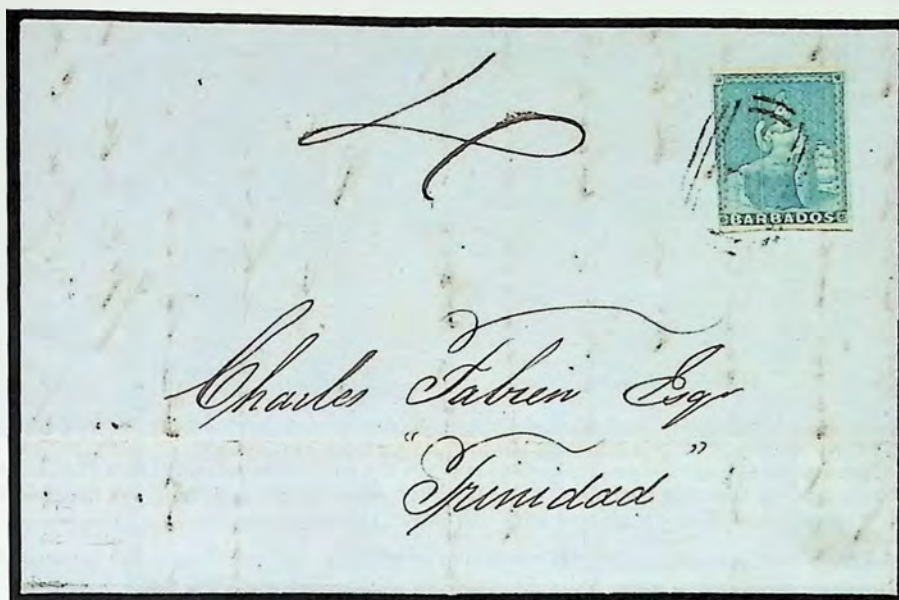 BARBADOS
Charles Fabien Esqr
"Trinidad"